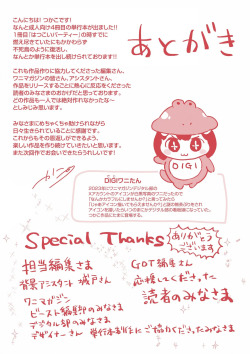 あとがき
こんにちは！つかこです！
なんと成人向け4冊目の単行本が出ました!!
1冊目「はつこいパーティー」の時すでに
燃え尽きていたにもかかわらず
不死鳥のように復活し、
なんとか単行本を出し続けられております!!
これも作品作りに協力してくださった編集さん、
ワニマガジンの皆さん、アシスタントさん、
作品をリリースするごとに熱心に反応をくださった
読者のみなさまのおかげだと思っております。
どの作品も一人では絶対作れなかったな〜
としみじみ思います。
みなさまにめちゃくちゃ助けられながら
日々生きられていることに感謝です。
これからもその恩返しができるよう、
楽しい作品を作り続けていきたいと思います。
また次回作でお会いできたらうれしいです!
DIGI
DIGIワニたん
Special Thanks
ありがとう
ございます
担当編集さま
背景アシスタント 城戸さん
ワニマガジン
ビースト編集部のみなさま
デジタル部のみなさま
デザイナーさん
GOT編集さん
応援してくださった
読者のみなさま
単行本制作にご協力くださったみなさま